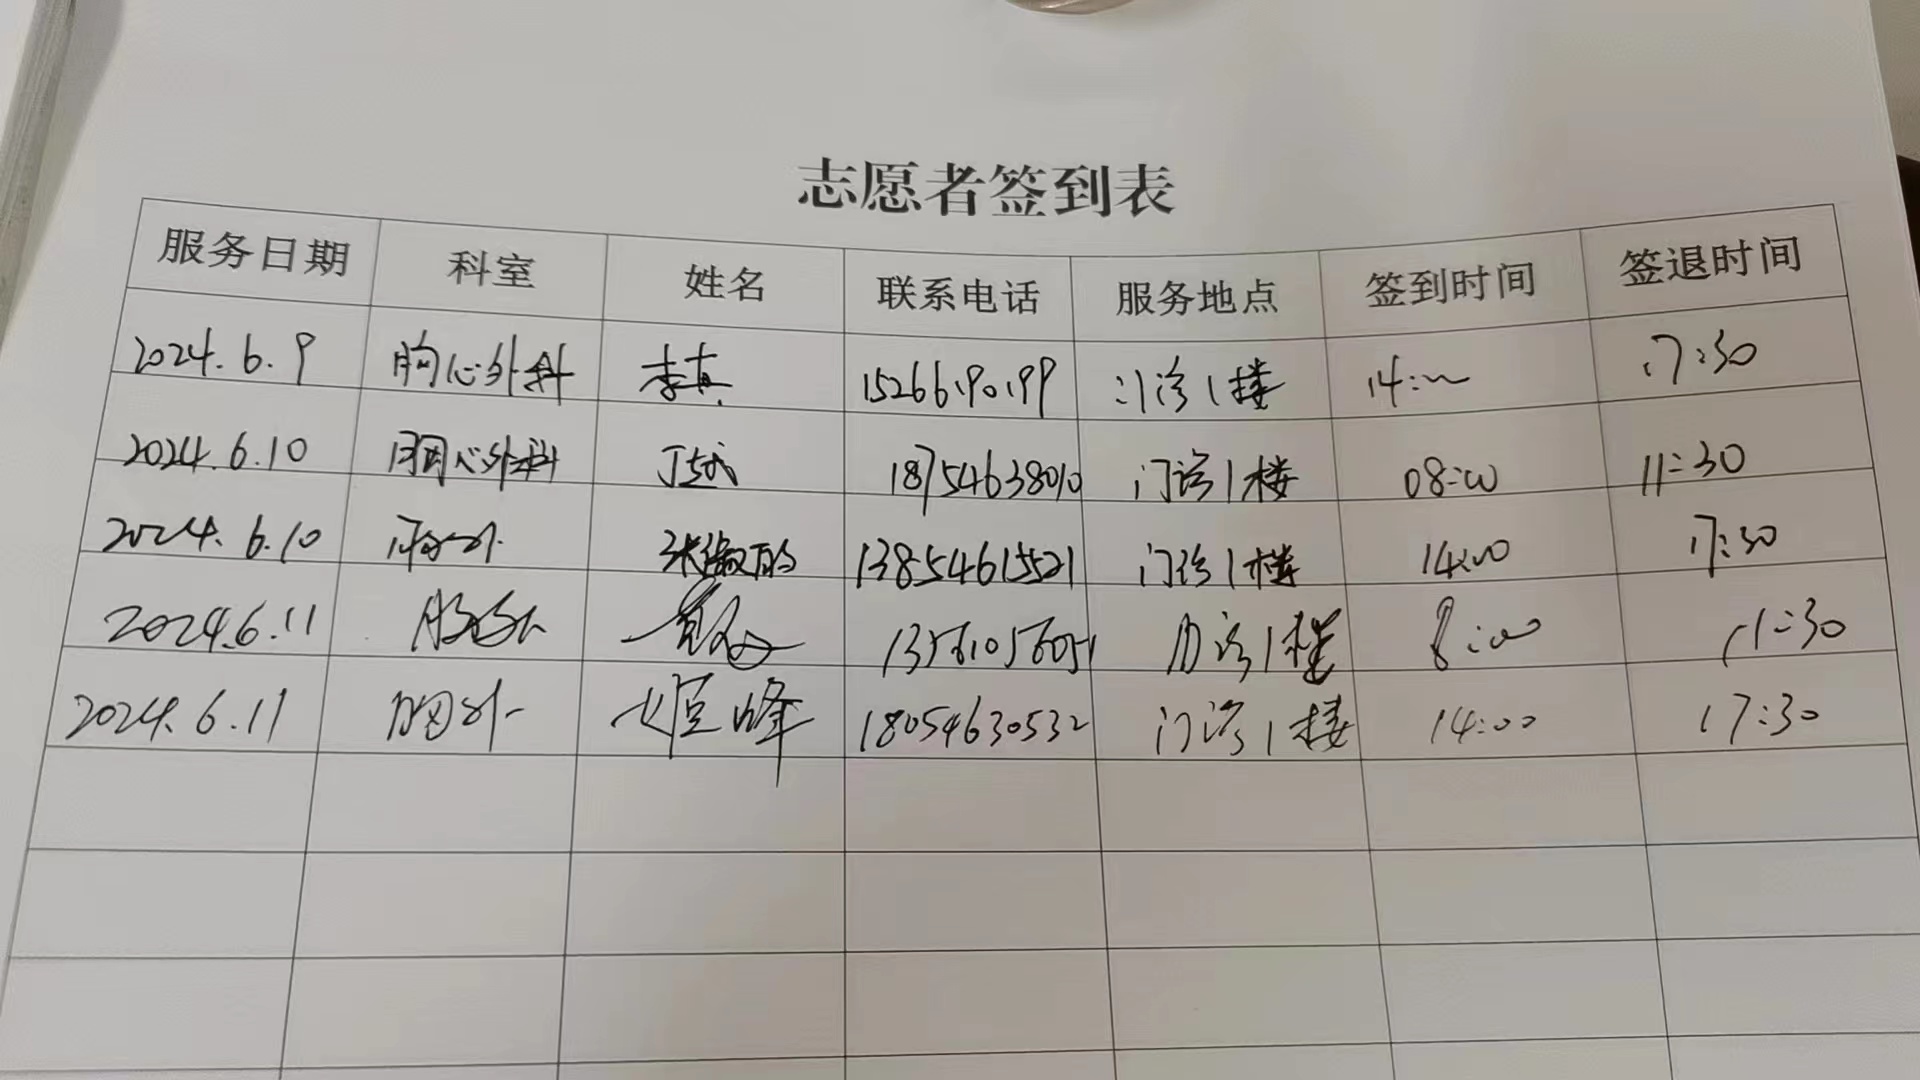 志愿者签到表
服务日期 科室 姓名 联系电话 服务地点 签到时间 签退时间
2024.6.9 胸心外科 李真 15266190199 门诊1楼 14:00 17:30
2024.6.10 胸心外科 丁斌 18754638010 门诊1楼 08:00 11:30
2024.6.10 胸外 13854615521 门诊1楼 14:00 17:30
2024.6.11 门诊1楼 8:00 11:30
2024.6.11 胸外 峰 18054630532 门诊1楼 14:00 17:30